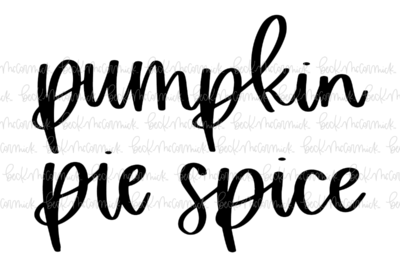 pumpkin
pie spice